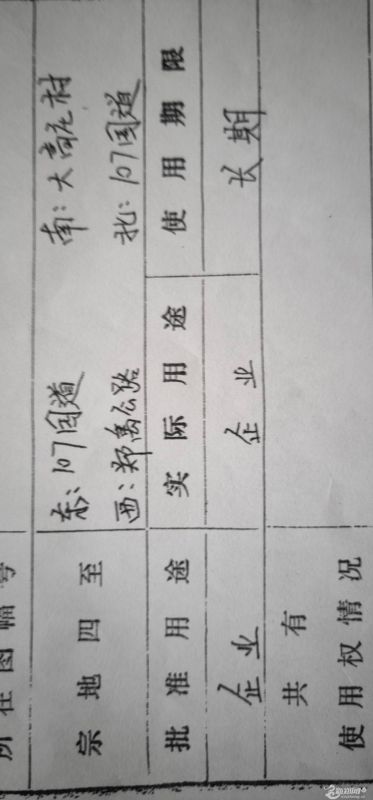 所在图幅号
宗地四至
东：107国道
南：大高庄村
西：郑禹公路
北：107国道
批准用途
实际用途
使用期限
企业
企业
长期
共有
使用权情况